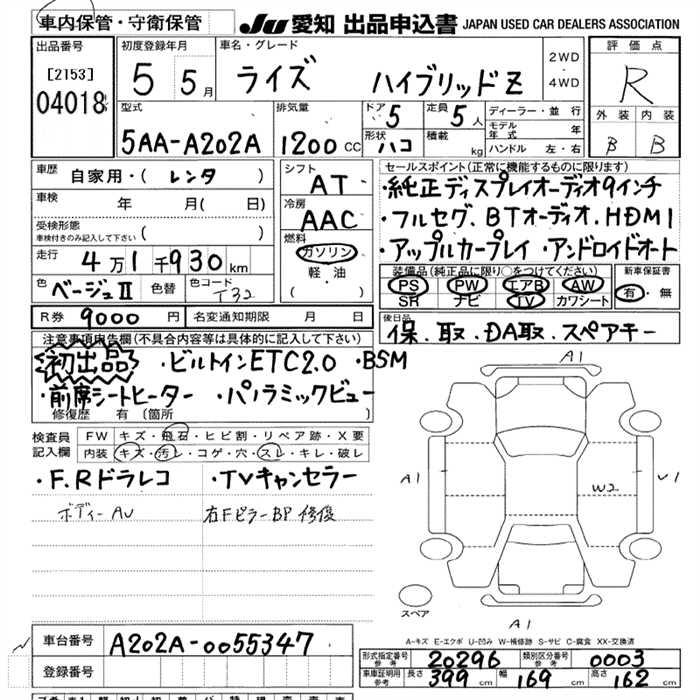 車内保管・守衛保管
JU 愛知 出品申込書 JAPAN USED CAR DEALERS ASSOCIATION
出品番号
[2153]
04018
初度登録年月
5 5月
車名・グレード
ライズ ハイブリッドZ
2WD
・
4WD
評価点
R
外装 内装
B B
型式
5AA-A202A
排気量
1200 CC
ドア 5
形状 ハコ
定員 5人
積載 kg
ディーラー・並行
モデル年式 年
ハンドル 左・右
車歴
自家用・(レンタ)
車検 年 月( 日)
受検形態
車検付きのみ記入して下さい ( )
走行 4万1千930km
色 ベージュII 色替 色コード T32
シフト
AT
冷房
AAC
燃料
ガソリン
軽・油
( )
セールスポイント(正常に機能するものに限ります)
・純正ディスプレイオーディオ9インチ
・フルセグ、BTオーディオ、HDMI
・アップルカープレイ・アンドロイドオート
装備品(純正品に限り○をつけてください)
PS PW エアB AW
SR ナビ TV カワシート
新車保証書
有・無
R券 9000円 名変通知期限 月 日
後日品
保、取、DA取、スペアキー
注意事項申告欄(不具合内容等は具体的に記入して下さい)
初出品 ・ビルトインETC2.0 ・BSM
・前席シートヒーター ・パノラミックビュー
修復歴 有(箇所 )
検査員
記入欄
FW キズ・飛石・ヒビ割・リペア跡・X要
内装 キズ・汚レ・コゲ・穴・スレ・キレ・破レ
・F.Rドラレコ ・TVキャンセラー
ボディーAU 右FピラーBP修復
A1
A1
W2
U1
A1
スペア
A-キズ E-エクボ U-凹み W-補修跡 S-サビ C-腐食 XX-交換済
車台番号 A202A-0055347
登録番号
形式指定番号
参考
20296
類別区分番号
参考
0003
車車証明用
参考
長さ 399cm 幅 169cm 高さ 162cm